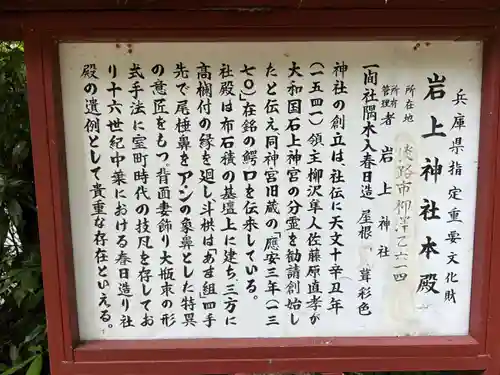 兵庫県指定重要文化財
岩上神社本殿
所在地 淡路市柳澤乙六一四
所有者
管理者 岩上神社
一間社隅木入春日造 屋根 葺彩色
神社の創立は、社伝に天文十辛丑年
(一五四一)領主柳沢隼人佐藤原直孝が
大和国石上神宮の分霊を勧請創始し
たと伝え同神宮旧蔵の應安三年(一三
七〇)在銘の鰐口を伝来している。
社殿は布石積の基壇上に建ち三方に
高欄付の縁を廻し斗栱は「あま組」四手
先で尾棰鼻をアンの象鼻とした特異
の意匠をもつ。背面妻飾り大瓶束の形
式手法に室町時代の技凡を存してお
り十六世紀中葉における春日造り社
殿の遺例として貴重な存在といえる。